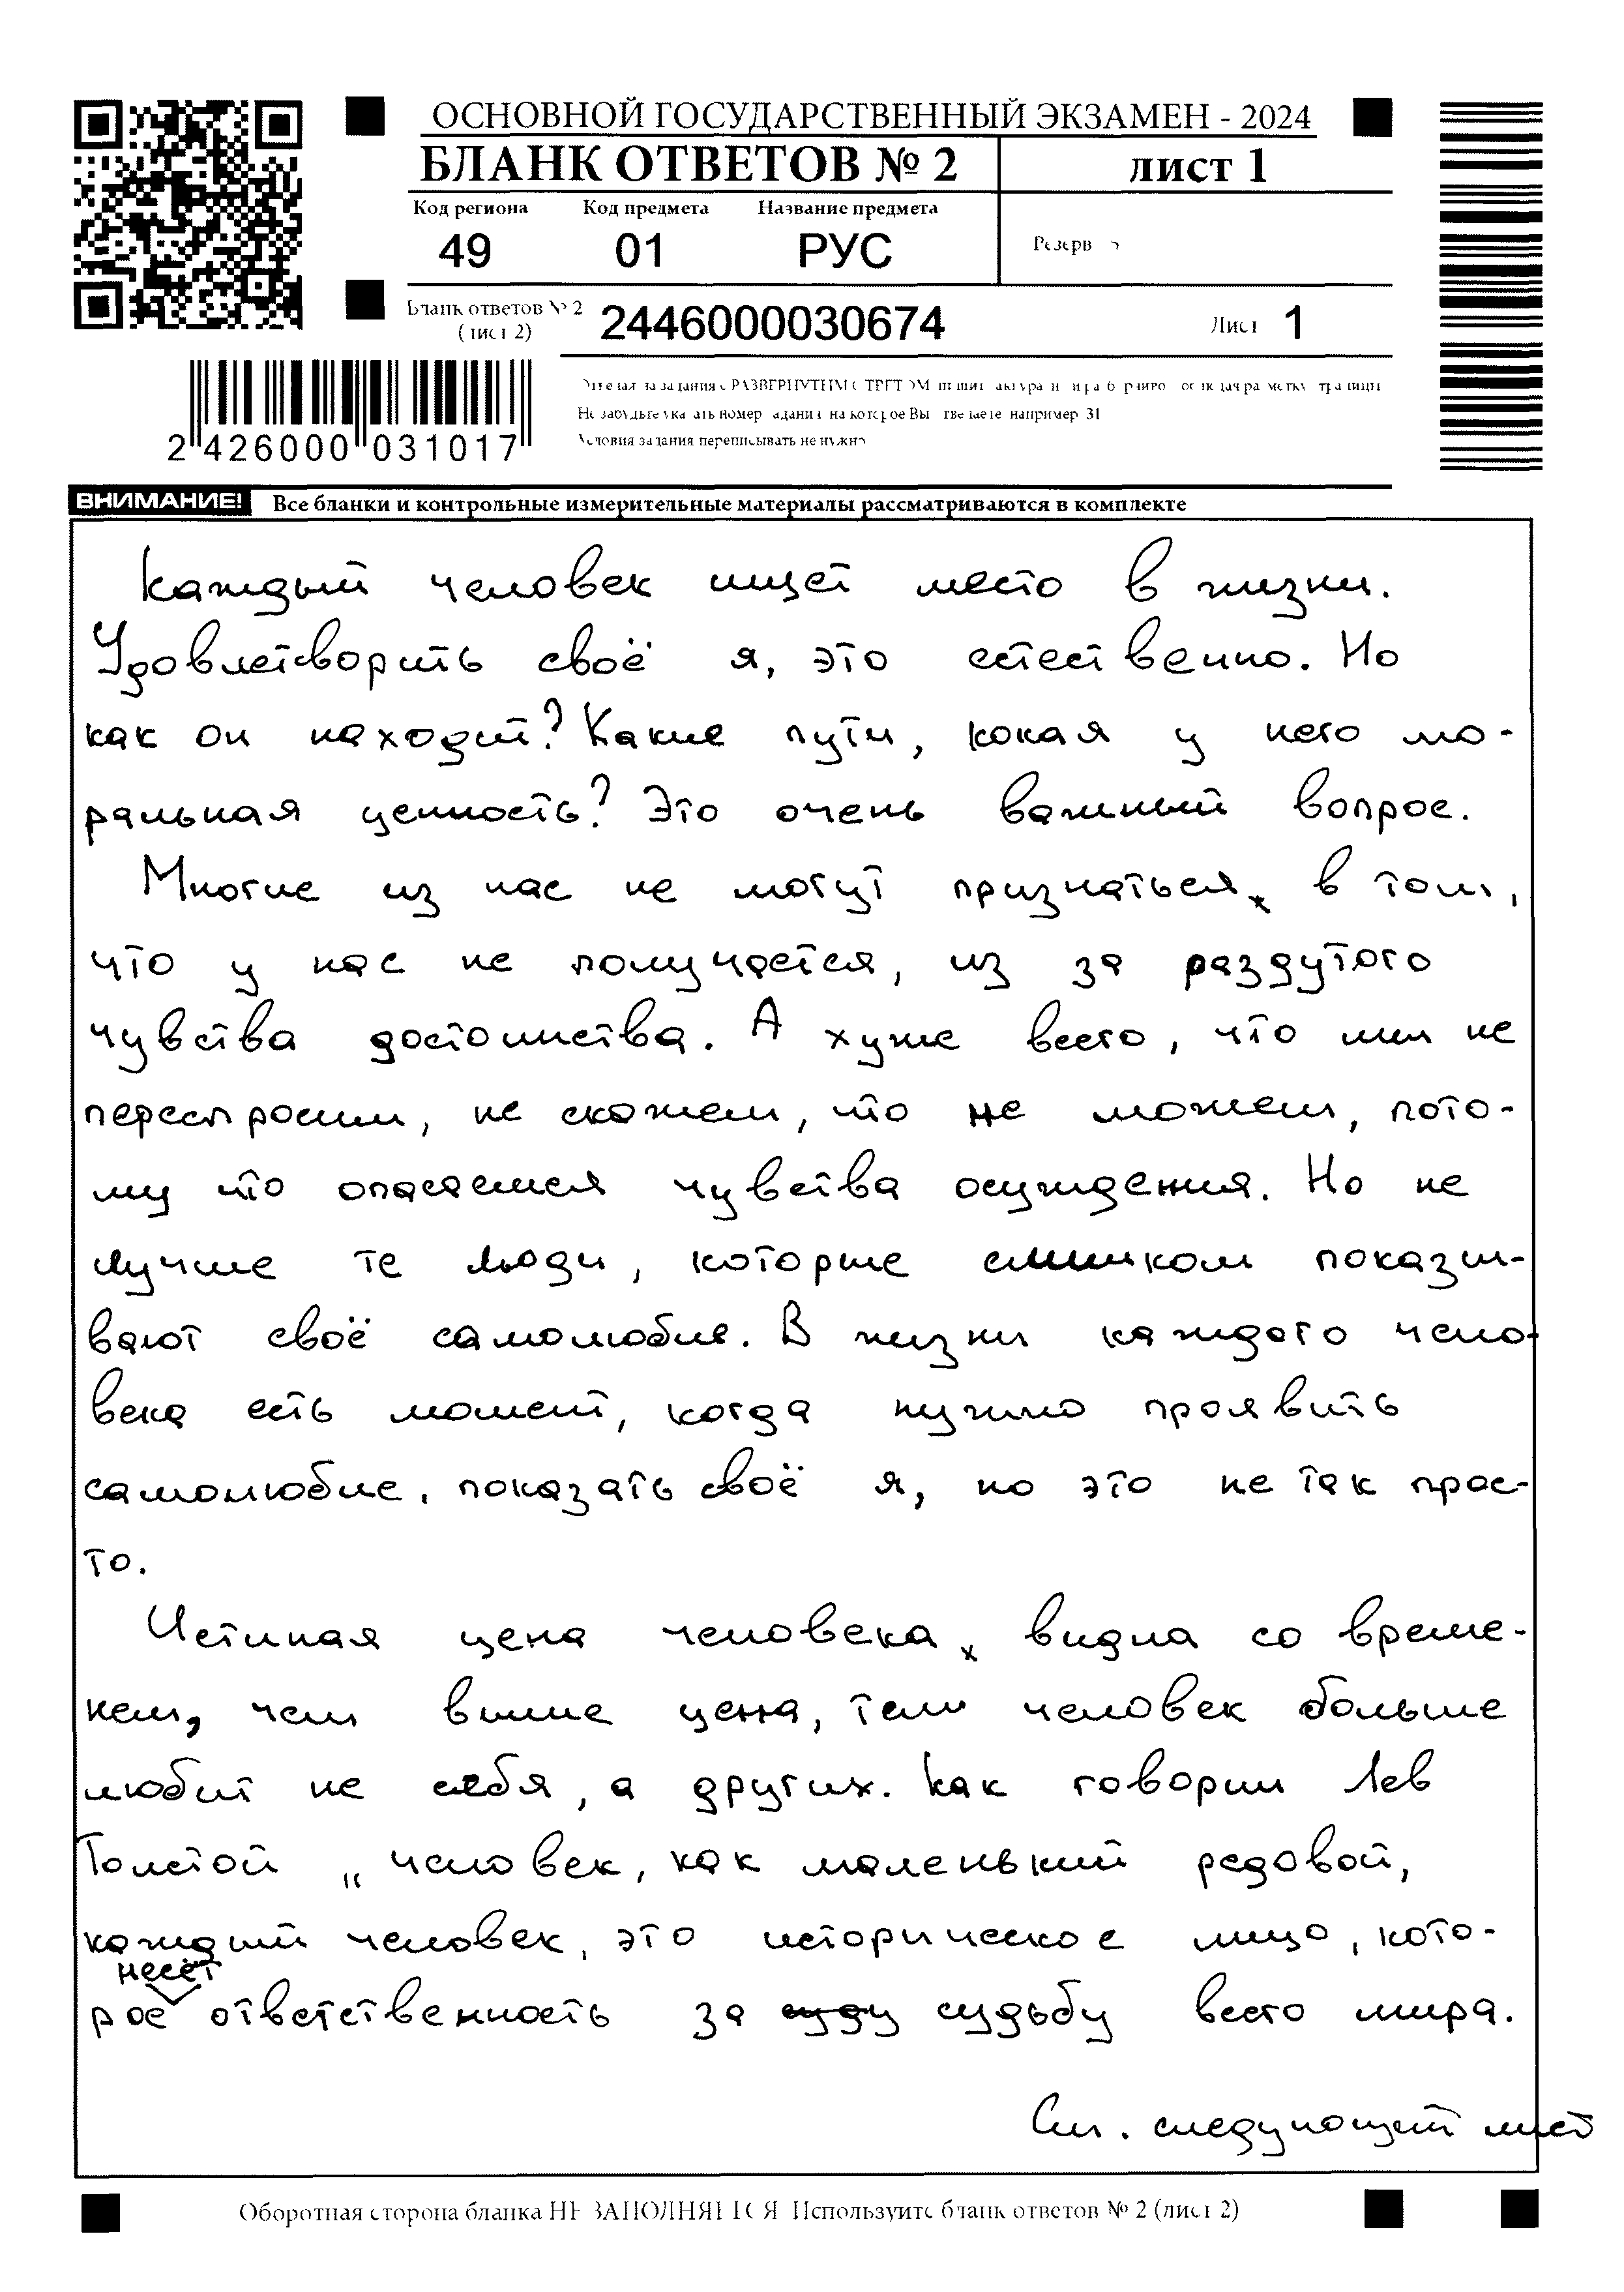 ОСНОВНОЙ ГОСУДАРСТВЕННЫЙ ЭКЗАМЕН - 2024
БЛАНК ОТВЕТОВ № 2 лист 1
Код региона Код предмета Название предмета
49 01 РУС Резерв
Бланк ответов № 2
(лист 2) 2446000030674 Лист 1
2 426000 031017
Отвечая на задания с РАЗВЕРНУТЫМ ОТВЕТОМ
Не забудьте указать номер задания на которое Вы отвечаете например 31
Условия задания переписывать не нужно
ВНИМАНИЕ! Все бланки и контрольные измерительные материалы рассматриваются в комплекте
Каждый человек ищет место в жизни.
Удовлетворить своё я, это естественно. Но
как он находит? Какие пути, кокая у него мо-
ральная ценность? Это очень важный вопрос.
Многие из нас не могут признаться в том,
что у нас не получается, из за раздутого
чувства достоинства. А хуже всего, что мы не
переспросим, не скажем, что не можем, пото-
му что опасаемся чувства осуждения. Но не
лучше те люди, которые слишком показы-
вают своё самолюбие. В жизни каждого чело-
века есть момент, когда нужно проявить
самолюбие, показать своё я, но это не так прос-
то.
Истиная цена человека видна со време-
нем, чем выше цена, тем человек больше
любит не себя, а других. Как говорил Лев
Толстой „человек, как маленький редовой,
каждый человек, это историческое лицо, кото-
рое несёт ответственность за судьбу всего мира.
См. следующий лист
Оборотная сторона бланка НЕ ЗАПОЛНЯЕТСЯ Используйте бланк ответов № 2 (лист 2)